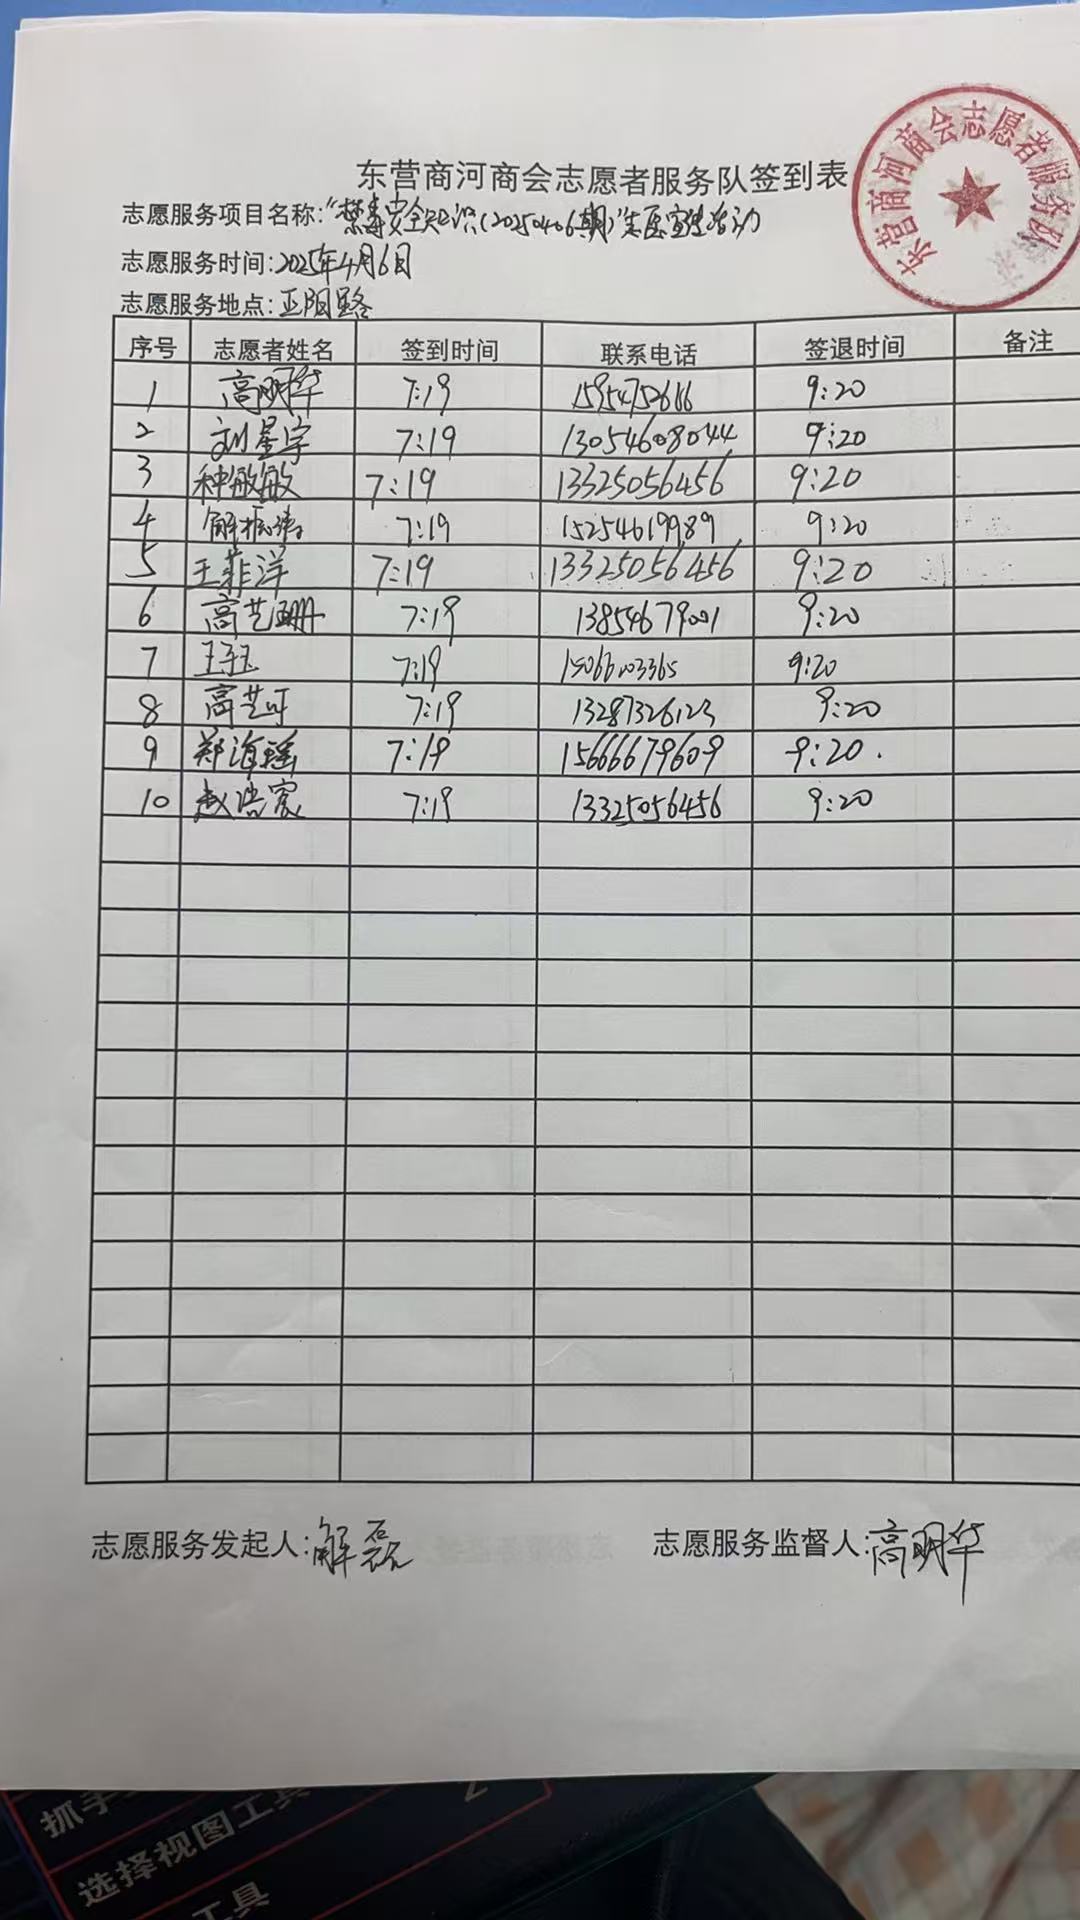 东营商河商会志愿者服务队签到表
东营商河商会志愿者服务队
志愿服务项目名称:"禁毒安全知识(20250406期)"志愿宣传活动
志愿服务时间:2025年4月6日
志愿服务地点:正阳路
序号 志愿者姓名 签到时间 联系电话 签退时间 备注
1 高明华 7:19 15954752666 9:20
2 刘星宇 7:19 13054608044 9:20
3 种敏敏 7:19 13325056456 9:20
4 解振 7:19 15254619989 9:20
5 王菲洋 7:19 13325056456 9:20
6 高艺珊 7:19 13854679001 9:20
7 王钰 7:19 15066003365 9:20
8 高艺可 7:19 13287326123 9:20
9 郑海瑶 7:19 15666679609 9:20.
10 赵浩宸 7:19 13325056456 9:20
志愿服务发起人:解磊 志愿服务监督人:高明华
抓手工
选择视图工具
工具